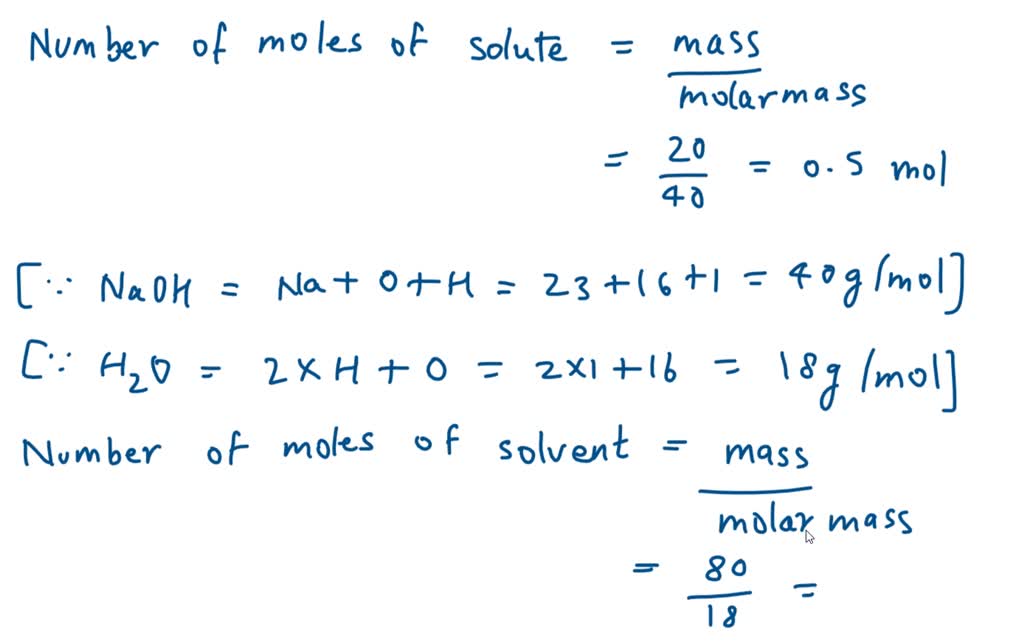 Number of moles of solute = mass / molar mass
= 20/40 = 0.5 mol
[∵ NaOH = Na + O + H = 23 + 16 + 1 = 40 g/mol]
[∵ H₂O = 2 × H + O = 2×1 + 16 = 18 g/mol]
Number of moles of solvent = mass / molar mass
= 80/18 =